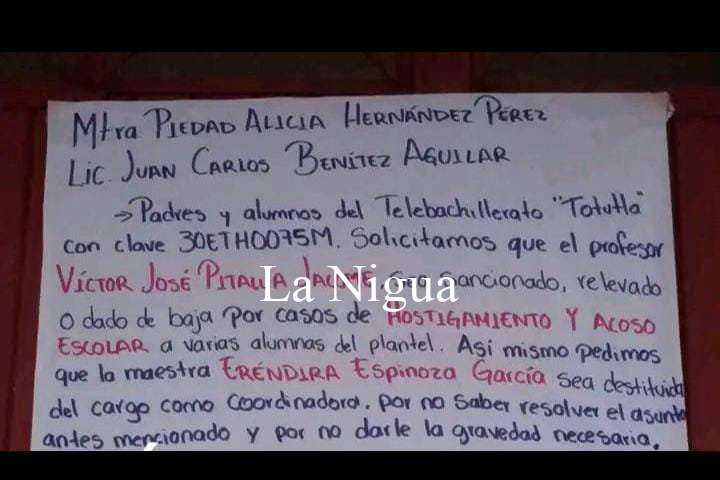 Mtra PIEDAD ALICIA HERNÁNDEZ PÉREZ
LIC. JUAN CARLOS BENÍTEZ AGUILAR
→ Padres y alumnos del Telebachillerato "Totutla"
con clave 30ETH0075M. Solicitamos que el profesor
VÍCTOR JOSÉ sancionado, relevado
La Nigua
o dado de baja por casos de HOSTIGAMIENTO Y ACOSO
ESCOLAR a varias alumnas del plantel. Así mismo pedimos
que la maestra ERÉNDIRA ESPINOZA García sea destituida
del cargo como coordinadora. por no saber resolver el asunto
antes mencionado y por no darle la gravedad necesaria.